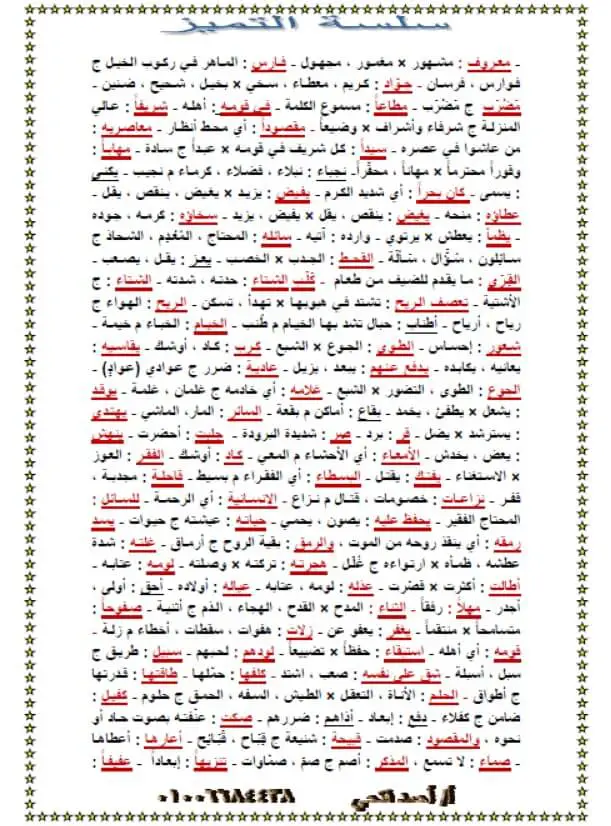 سلسلة التميز
ـ معروف : مشهور × مغمور ، مجهول ـ فارس : الماهر في ركوب الخيل ج
فوارس ، فرسان ـ جوّاد : كريم ، معطاء ، سخي × بخيل ، شحيح ، ضنين ـ
مَضْرَب ج مَضْرَب ـ مطاعاً : مسموع الكلمة ـ في قومه : أهله ـ شريفاً : عالي
المنزلة ج شرفاء وأشراف × وضيعاً ـ مقصوداً : أي محط أنظار ـ معاصريه :
من عاشوا في عصره ـ سيداً : كل شريف في قومه × عبداً ج سادة ـ مهاباً :
وقوراً محترماً × مهاناً ، محقّراً ـ نجباء : نبلاء ، فضلاء ، كرماء م نجيب ـ يكني
: يسمى ـ كان بحراً : أي شديد الكرم ـ يفيض : يزيد × يغيض ، ينقص ، يقل ـ
عطاؤه : منحه ـ يغيض : ينقص ، يقل × يفيض ، يزيد ـ سخاؤه : كرمه ، جوده
ـ يظمأ : يعطش × يرتوي ـ وارده : آتيه ـ سائله : المحتاج ، المُعْدِم ، الشحاذ ج
سائلون ، سُؤَّال ، سَأَلَة ـ القحط : الجدب × الخصب ـ يعز : يقل ، يصعب ـ
القِرَي : ما يقدم للضيف من طعام ـ كَلَب الشتاء : حدته ، شدته ـ الشتاء : ج
الأشتية ـ تعصف الريح : تشتد في هبوبها × تهدأ ، تسكن ـ الريح : الهواء ج
رياح ، أرياح ـ أطناب : حبال تشد بها الخيام م طُنب ـ الخيام : الخباء م خيمة ـ
شعور : إحساس ـ الطوي : الجوع × الشبع ـ كرب : كاد ، أوشك ـ يقاسيه :
يعانيه ، يكابده ـ يدفع عنهم : يبعد ، يزيل ـ عادية : ضرر ج عوادي (عوادٍ) ـ
الجوع : الطوى ، التضور × الشبع ـ غلامه : أي خادمه ج غلمان ، غلمة ـ يوقد
: يشعل × يطفئ ، يخمد ـ بقاع : أماكن م بقعة ـ السائر : المار، الماشي ـ يهتدي
: يسترشد × يضل ـ قر : برد ـ صر : شديدة البرودة ـ جلبت : أحضرت ـ ينهش
: يعض ، يخدش ـ الأمعاء : أي الأحشاء م المعي ـ كاد : أوشك ـ الفقر : العوز
× الاستغناء ـ يفتك : يقتل ـ البسطاء : أي الفقراء م بسيط ـ قاحلة : مجدبة ،
قفر ـ نزاعات : خصومات ، قتال م نزاع ـ الإنسانية : أي الرحمة ـ للسائل :
المحتاج الفقير ـ يحفظ عليه : يصون ، يحمي ـ حياته : عيشته ج حيوات ـ يسد
رمقه : أي ينقذ روحه من الموت ، والرمق : بقية الروح ج أرماق ـ غلته : شدة
عطشه ، ظمأه × ارتواءه ج غُلَل ـ هجرته : تركته × وصلته ـ لومه : عتابه ـ
أطالت : أكثرت × قصّرت ـ عذله : لومه ، عتابه ـ عياله : أولاده ـ أحق : أولى ،
أجدر ـ مهلاً : رفقاً ـ الثناء : المدح × القدح ، الهجاء ، الذم ج أثنية ـ صفوحاً :
متسامحاً × منتقماً ـ يغفر : يعفو عن ـ زلات : هفوات ، سقطات ، أخطاء م زلة ـ
قومه : أي أهله ـ استبقاء : حفظاً × تضييعاً ـ لودهم : لحبهم ـ سبيل : طريق ج
سبل ، أسبلة ـ شق على نفسه : صعب ، اشتد ـ كلفها : حمّلها ـ طاقتها : قدرتها
ج أطواق ـ الحلم : الأناة ، التعقل × الطيش ، السفه ، الحمق ج حلوم ـ كفيل :
ضامن ج كفلاء ـ دفع : إبعاد ـ أذاهم : ضررهم ـ صكت : عنّفته بصوت حاد أو
نحوه ، والمقصود : صدمت ـ قبيحة : شنيعة ج قِبَاح ، قَبَائح ـ أعارها : أعطاها
ـ صماء : لا تسمع ، المذكر : أصم ج صمّ ، صمّاوات ـ تنزيهاً : إبعاداً ـ عفيفاً :
أ/ أحمد فتحي ٠١٠٠٦٦٨٤٤٣٨